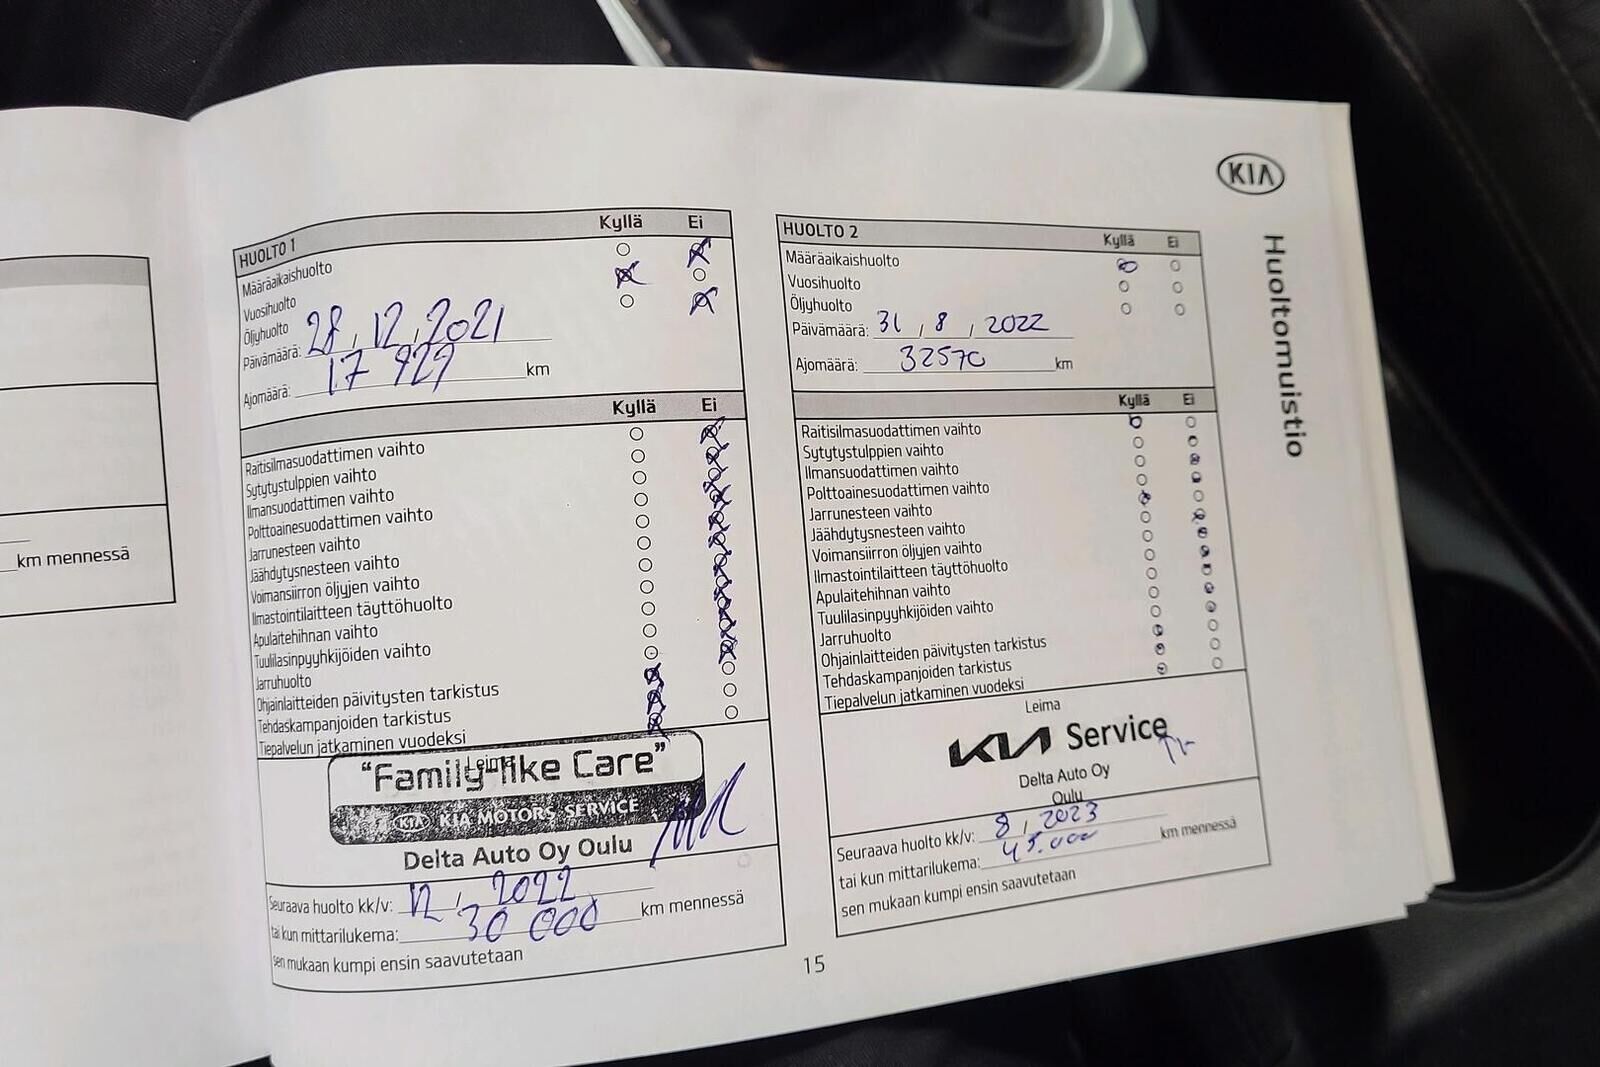 km mennessä
KIA
Huoltomuistio
HUOLTO 1 Kyllä Ei
Määräaikaishuolto
Vuosihuolto
Öljyhuolto
Päivämäärä: 28, 12, 2021
Ajomäärä: 17 929 km
Kyllä Ei
Raitisilmasuodattimen vaihto
Sytytystulppien vaihto
Ilmansuodattimen vaihto
Polttoainesuodattimen vaihto
Jarrunesteen vaihto
Jäähdytysnesteen vaihto
Voimansiirron öljyjen vaihto
Ilmastointilaitteen täyttöhuolto
Apulaitehihnan vaihto
Tuulilasinpyyhkijöiden vaihto
Jarruhuolto
Ohjainlaitteiden päivitysten tarkistus
Tehdaskampanjoiden tarkistus
Tiepalvelun jatkaminen vuodeksi
Leima
"Family-like Care"
KIA KIA MOTORS SERVICE
Delta Auto Oy Oulu
Seuraava huolto kk/v: 12, 2022
tai kun mittarilukema: 30 000 km mennessä
sen mukaan kumpi ensin saavutetaan
HUOLTO 2 Kyllä Ei
Määräaikaishuolto
Vuosihuolto
Öljyhuolto
Päivämäärä: 31, 8, 2022
Ajomäärä: 32570 km
Kyllä Ei
Raitisilmasuodattimen vaihto
Sytytystulppien vaihto
Ilmansuodattimen vaihto
Polttoainesuodattimen vaihto
Jarrunesteen vaihto
Jäähdytysnesteen vaihto
Voimansiirron öljyjen vaihto
Ilmastointilaitteen täyttöhuolto
Apulaitehihnan vaihto
Tuulilasinpyyhkijöiden vaihto
Jarruhuolto
Ohjainlaitteiden päivitysten tarkistus
Tehdaskampanjoiden tarkistus
Tiepalvelun jatkaminen vuodeksi
Leima
KIA Service
Delta Auto Oy
Oulu
Seuraava huolto kk/v: 8, 2023
tai kun mittarilukema: 45.000 km mennessä
sen mukaan kumpi ensin saavutetaan
15